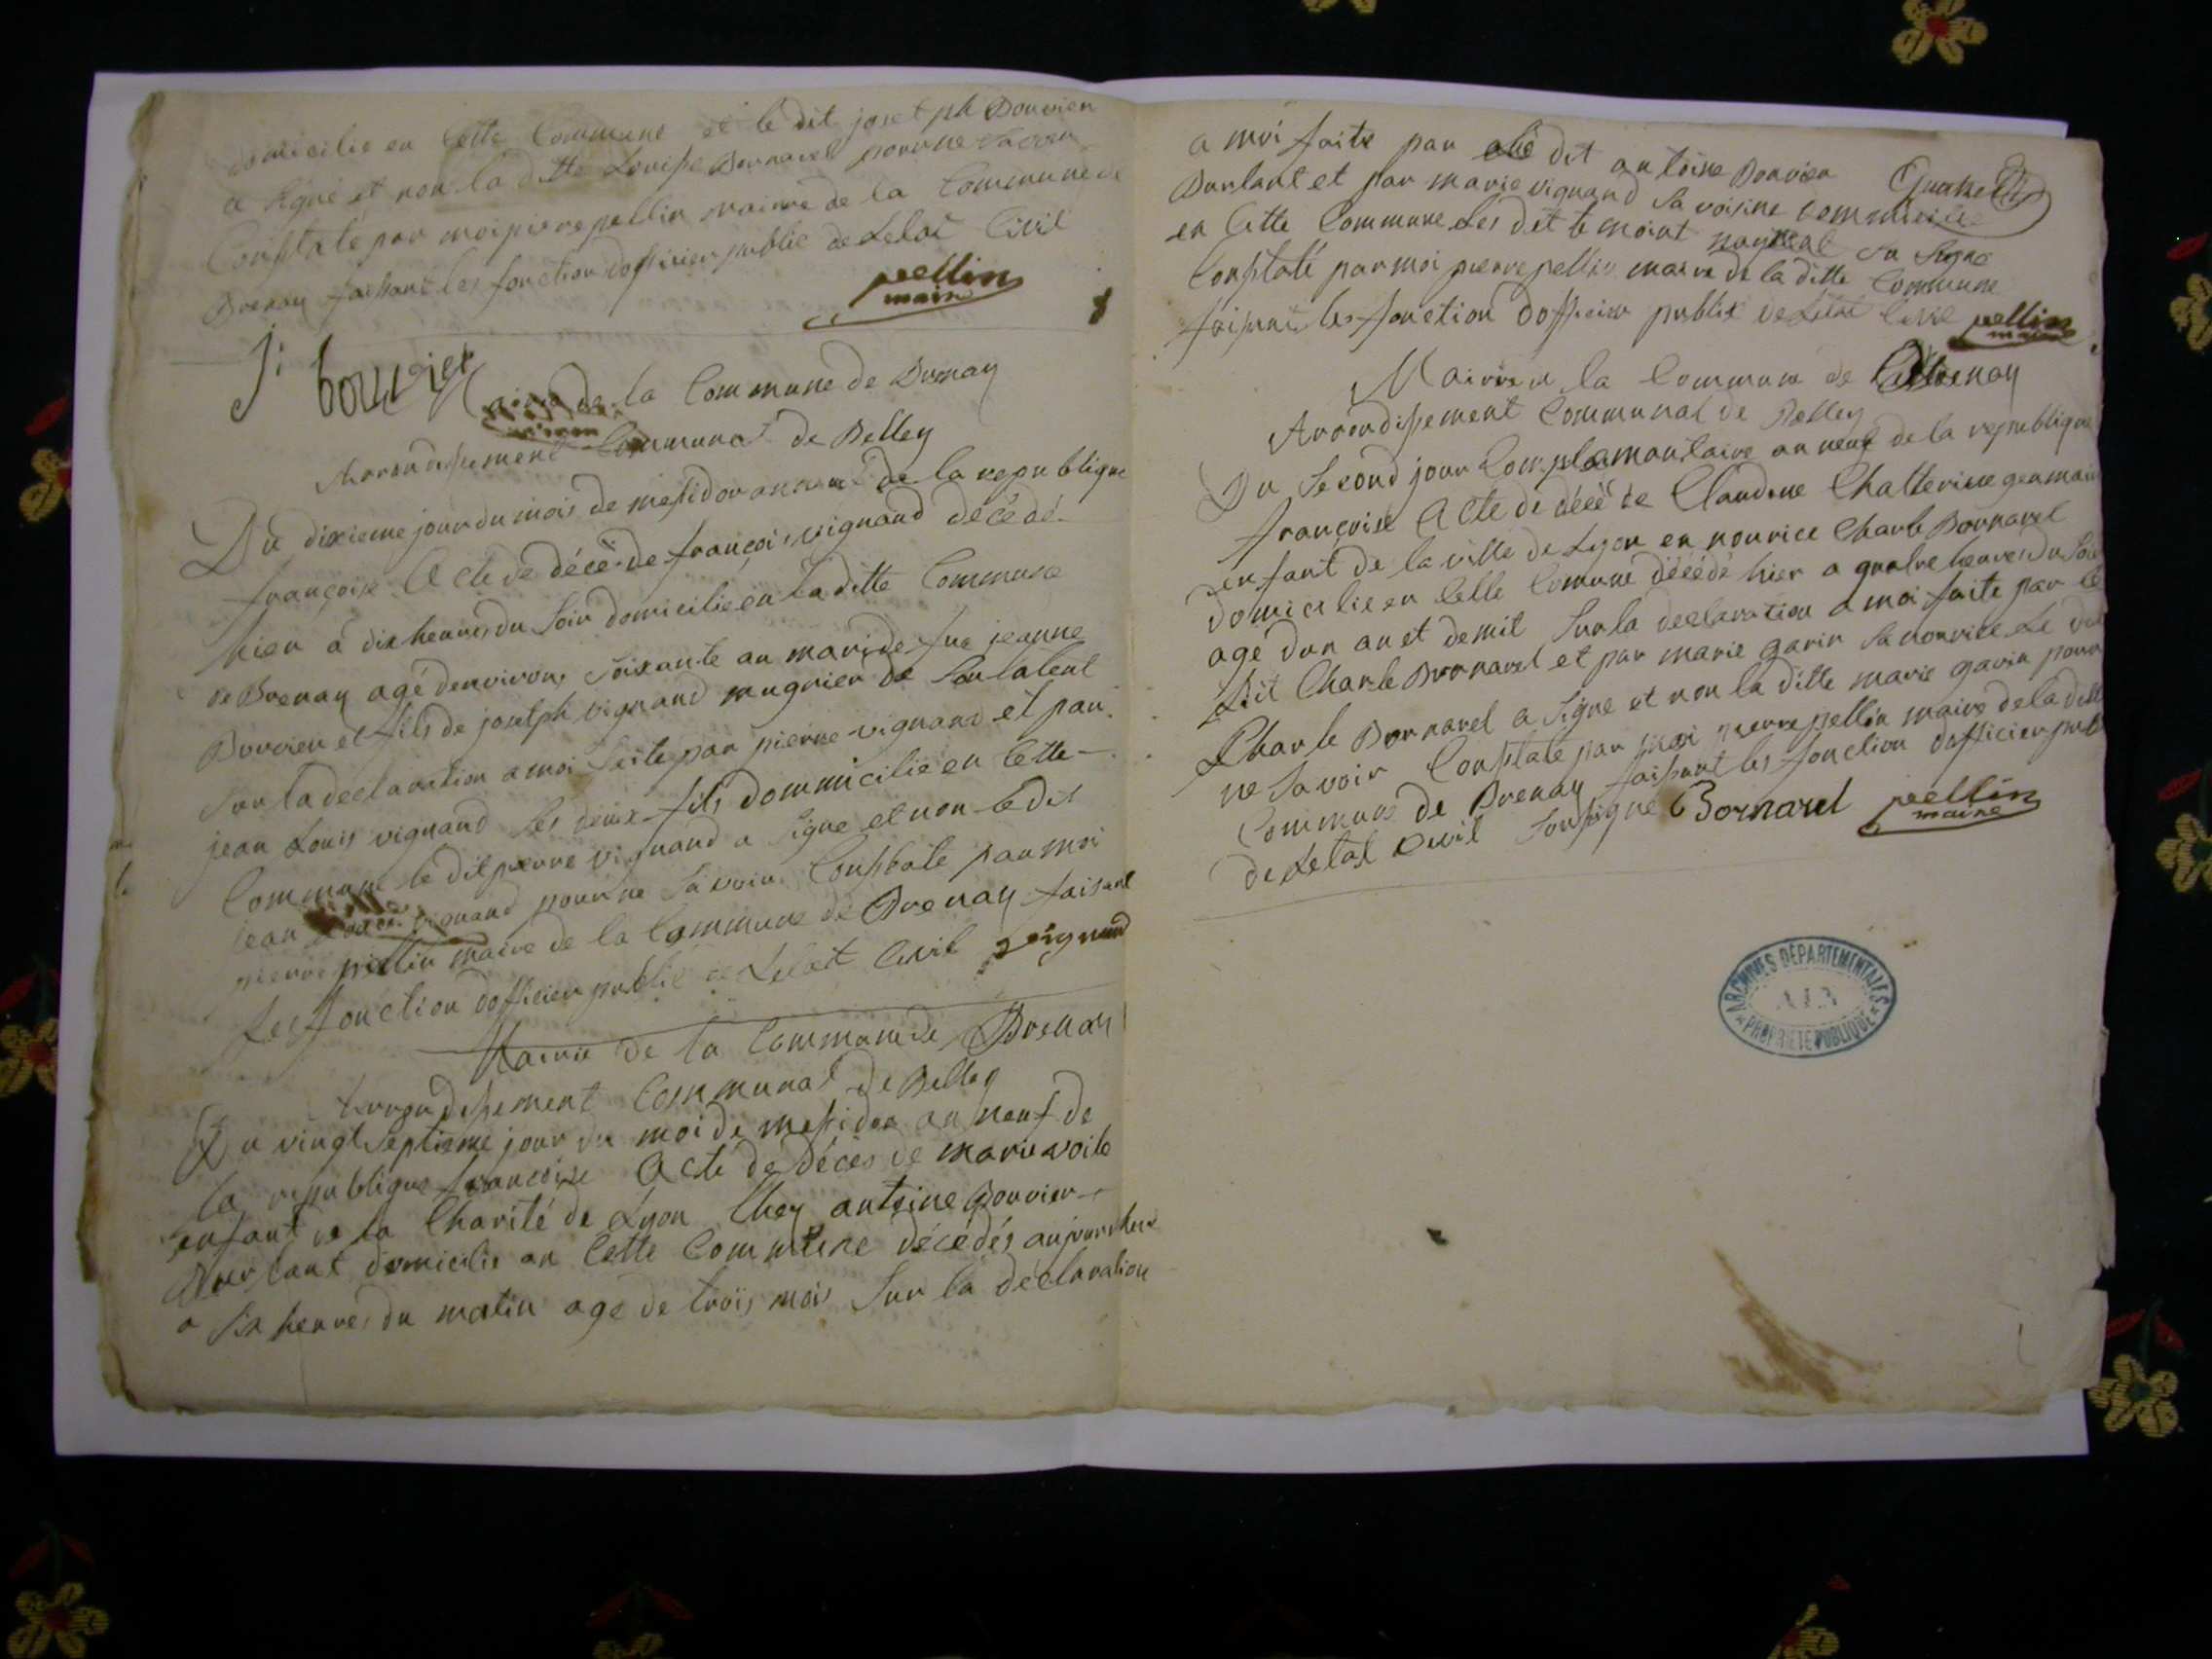 domicilie en Cette Commune et le dit josetph Bouvier
a signé et non la ditte Louise Bornarel pour ne savoir
Constaté par moi pierre pellin maire de la Commune de
Brenay faisant les fonction dofficier public de Letat Civil
pellin
maire
J: bouvier
Mairie de la Commune de Brenay
Arrondissement Communal de Belley
Du dixieme jour du mois de messidor an neuf de la republique
françoise Acte de décè de françois vignand décédé
hier à dix heures du soir domicilie en La ditte Commune
de Brenay agé denvirons soixante an mari de fue jeanne
Bouvier et fils de josetph vignand
sur la declaration a moi faite par pierre vignand et par
jean Louis vignand ses deux fils dommicilie en Cette
Commune le dit pierre vignand a signe et non le dit
jean Louis vignand pour ne savoir Constate par moi
pierre pellin maire de la Commune de Brenay faisant
Les fonction dofficier public de Letat Civil vignand
Mairie de la Commune de Brenay
Arrondissement Communal de Belley
Du vingt septieme jour du moi de messidor an neuf de
la republique françoise Acte de décès de marie voile
enfant de la Charité de Lyon Chez antoine Bouvier
Burlant domicilie an Cette Commune décédés aujourdhui
a six heures du matin age de trois mois sur la declaration
a moi faite par le dit antoine Bouvier
Burlant et par marie vignand sa voisine dommicilie
en Cette Commune Les dit temoint nayant su signe
Constaté par moi pierre pellin maire de la ditte Commune
faisant les fonction dofficier public de Letat Civil pellin
maire
Mairie de la Commune de Brenay
Arrondissement Communal de Belley
Du second jour Complemantaire an neuf de la republique
françoise Acte de décè de Claudine Chatterine germain
enfant de la ville de Lyon en nourice Charle Bornarel
domicilie en Cette Comune décédé hier a quatre heures du soir
agé dun an et demit sur la declaration a moi faite par le
dit Charle Bornarel et par marie garin sa nourice Le dit
Charle Bornarel a signe et non la ditte marie garin pour
ne savoir Constate par moi pierre pellin maire de la ditte
Commune de Brenay faisant les fonction dofficier publ
de Letat Civil soussigne Bornarel pellin
maire
ARCHIVES DÉPARTEMENTALES
AIN
PROPRIÉTÉ PUBLIQUE